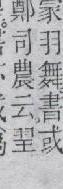 家羽舞書或
鄭司農云翌